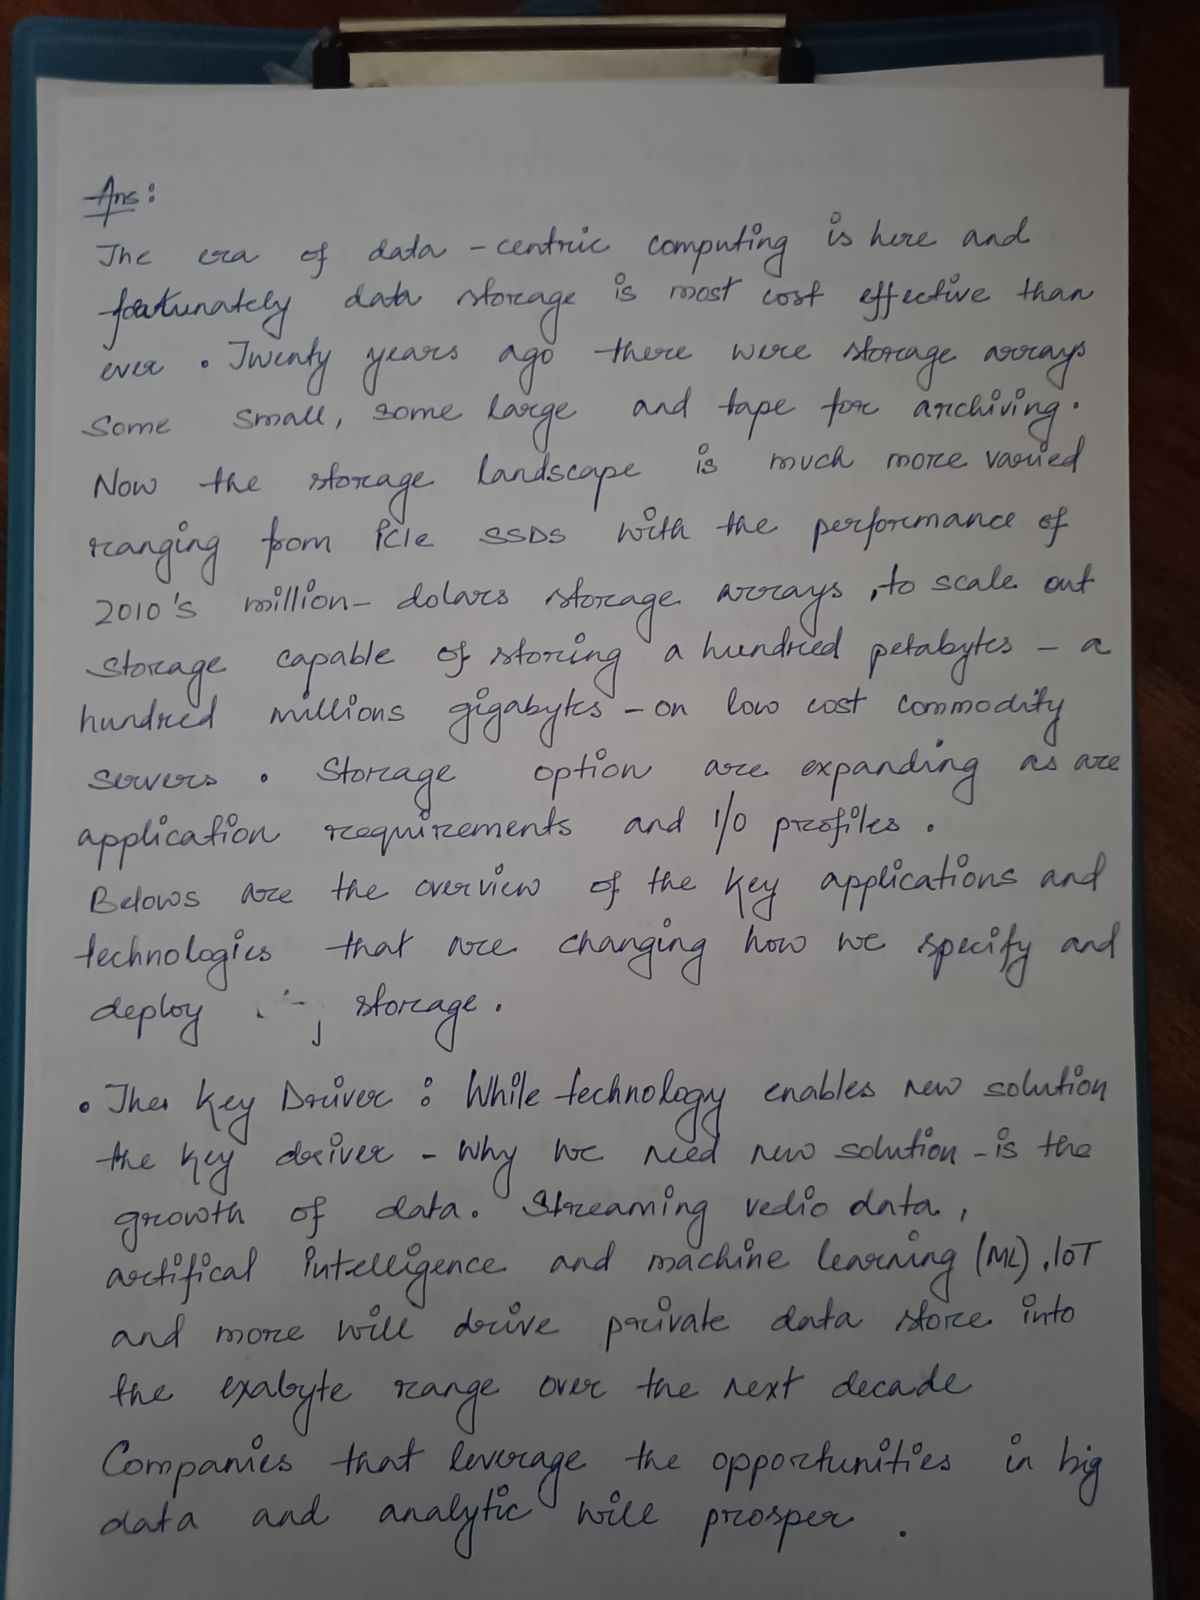 Ans:
The era of data - centric computing is here and
fortunately data storage is most cost effective than
ever . Twenty years ago there were storage arrays
some small, some large and tape for archiving.
Now the storage landscape is much more varied
ranging from PCIe SSDs with the performance of
2010's million- dolars storage arrays , to scale out
storage capable of storing a hundred petabytes - a
hundred millions gigabytes - on low cost commodity
servers . Storage option are expanding as are
application requirements and I/O profiles .
Belows are the overview of the key applications and
technologies that are changing how we specify and
deploy storage .
• The key Driver : While technology enables new solution
the key driver - Why we need new solution - is the
growth of data. Streaming vedio data ,
artifical intelligence and machine learning (ML) , IoT
and more will drive private data store into
the exabyte range over the next decade
Companies that leverage the opportunities in big
data and analytic will prosper .